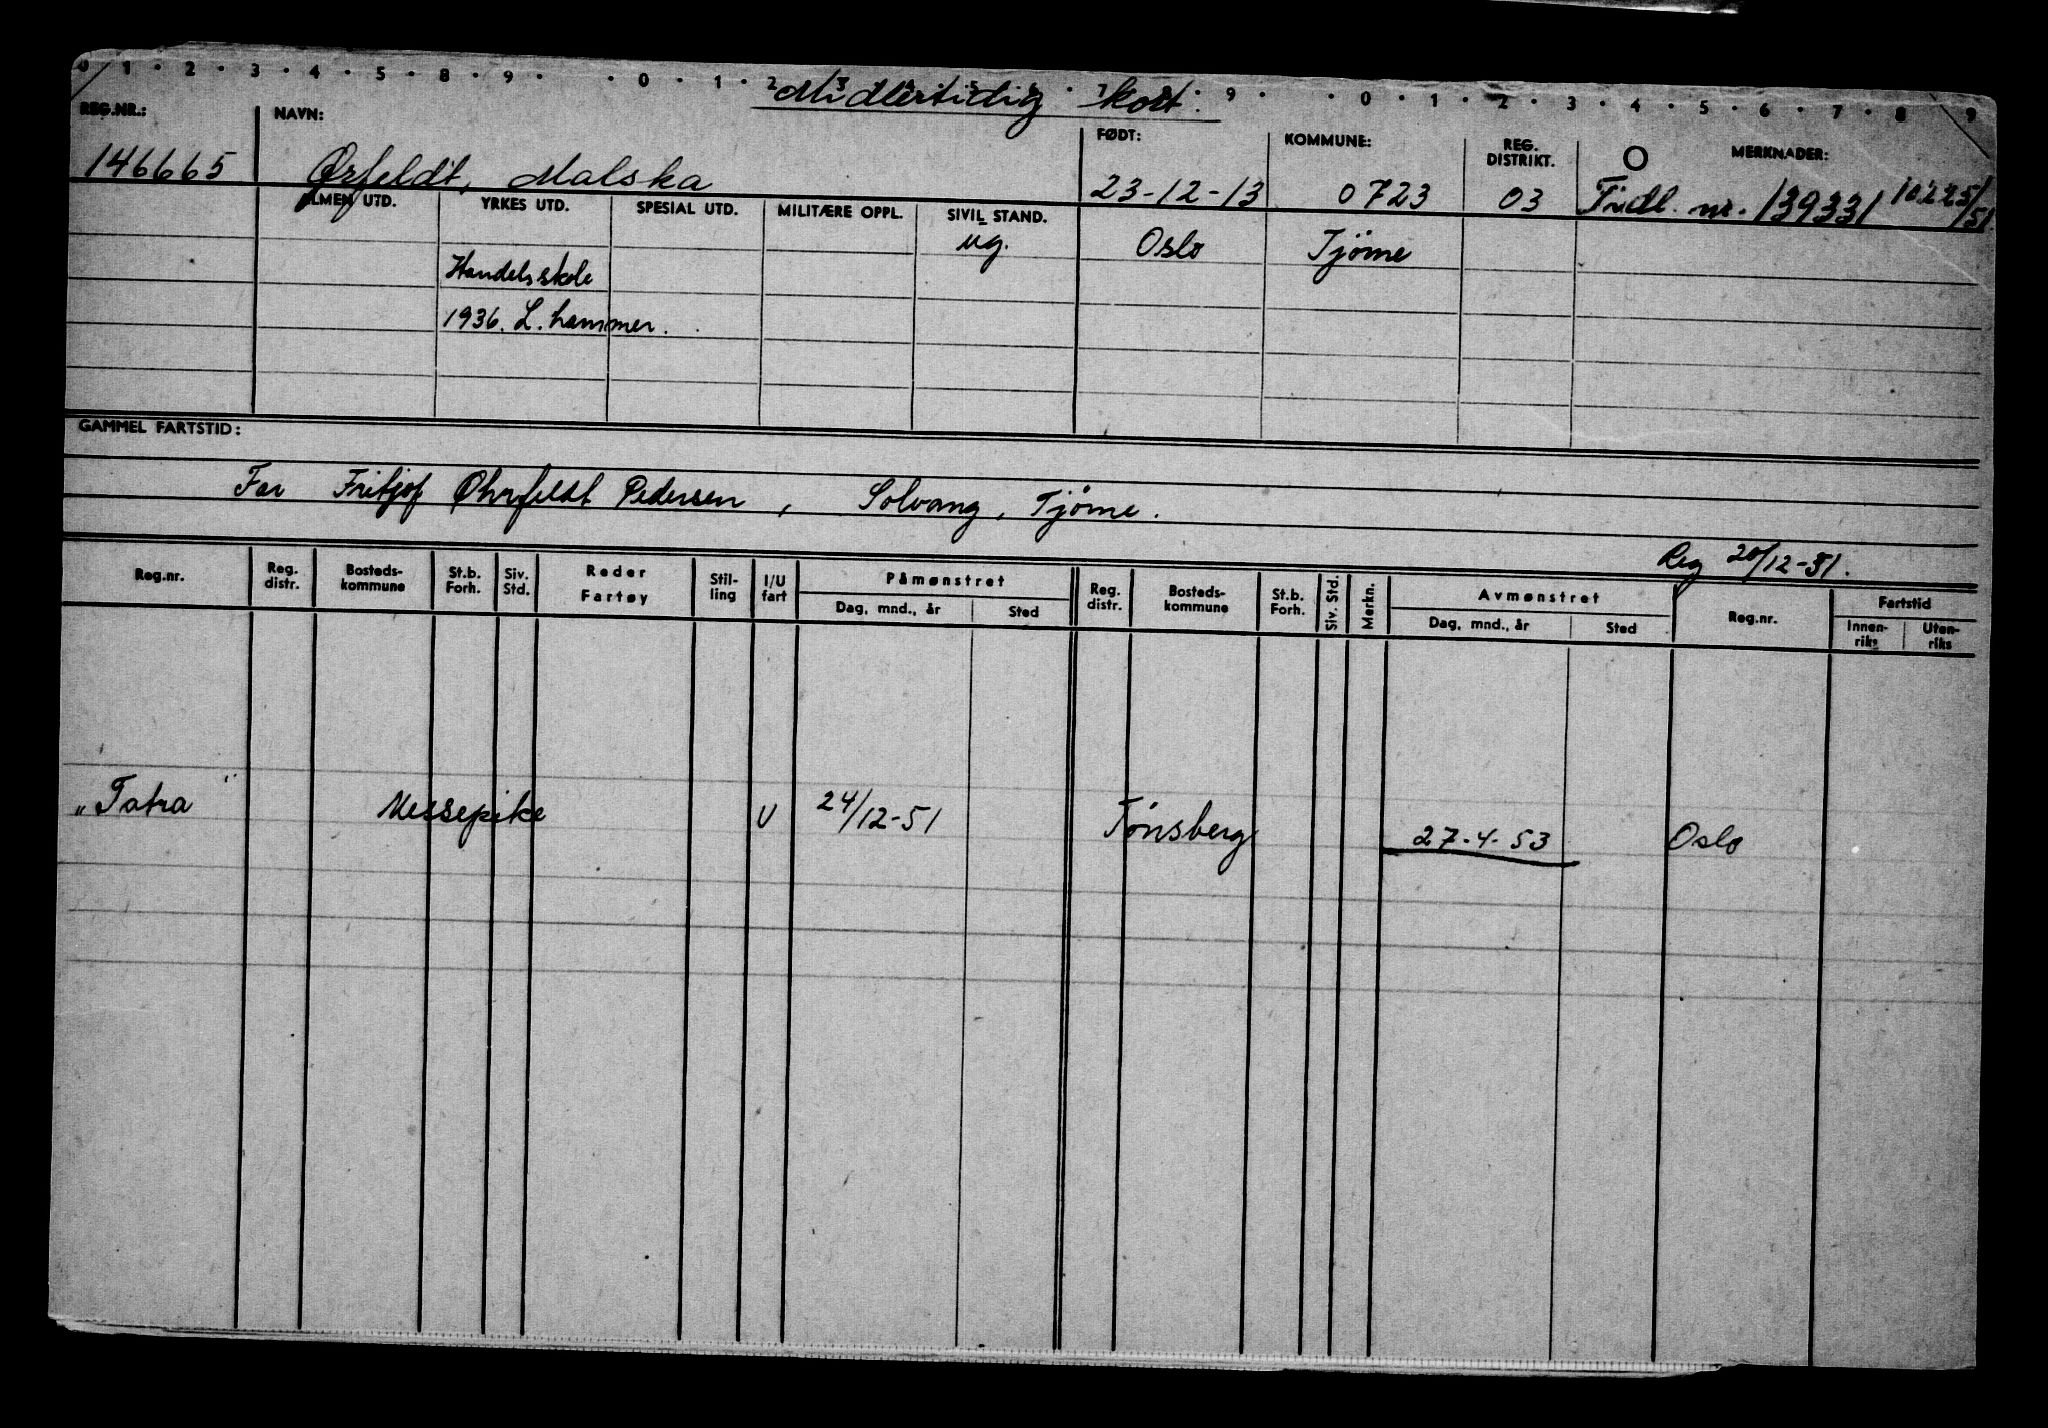 0 1 · 2 · 3 · 4 · 5 · 8 · 9 · · 0 · 1 · 2 3 · 5 · 7 · 9 · · 0 · 1 · 2 · 3 · 4 · 5 · 6 · 7 · 8 9
Midlertidig kort.
REG.NR.: NAVN: FØDT: KOMMUNE: REG. DISTRIKT. O MERKNADER:
146665 Ørfeldt, Malska 23-12-13 0723 03 Fridl. nr. 139331 10225/51
ALMEN UTD. YRKES UTD. SPESIAL UTD. MILITÆRE OPPL. SIVIL STAND.
ug. Oslo Tjöme
Handelsskole
1936. L.hammer.
GAMMEL FARTSTID:
Far Fritjof Øhrfeldt Pedersen, Solvang, Tjöme.
Reg 20/12-51.
Reg.nr. Reg. distr. Bosteds-kommune St.b. Forh. Siv. Std. Reder Fartøy Stil-ling I/U fart Påmønstret Dag, mnd., år Sted Reg. distr. Bosteds-kommune St.b. Forh. Siv. Std. Merkn. Avmønstret Dag, mnd., år Sted Reg.nr. Fartstid Innen-riks Uten-riks
"Tatra" Messepike U 24/12-51 Tønsberg 27-4-53 Oslo